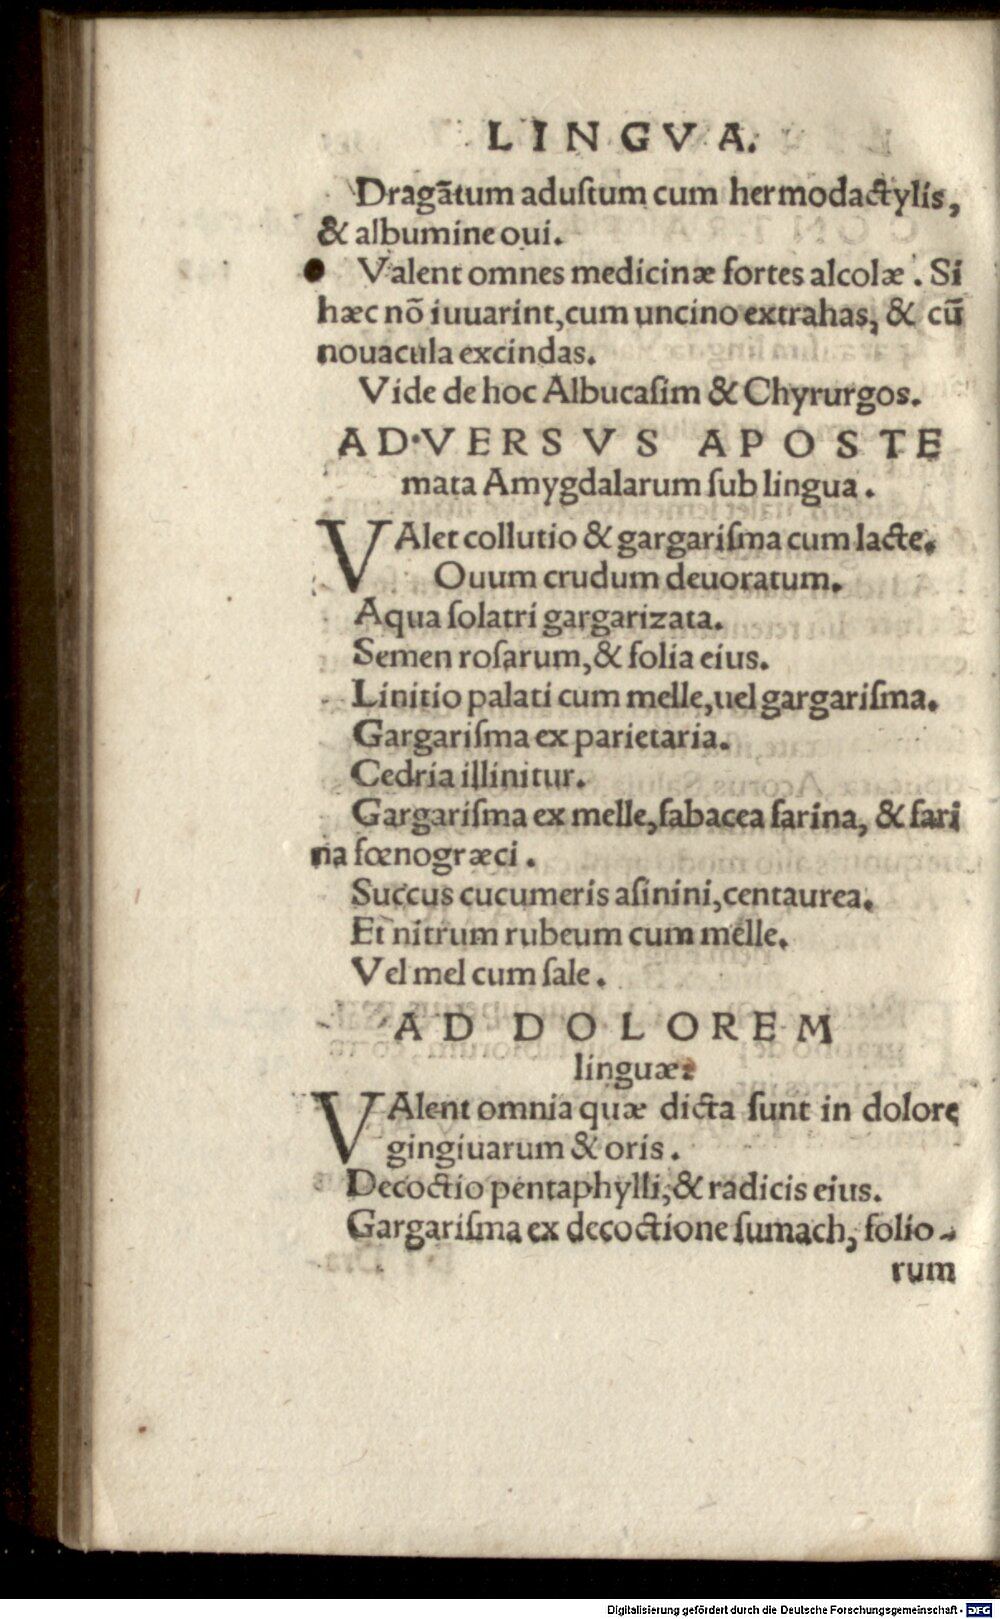 LINGVA.
Dragãtum aduſtum cum hermodactylis,
& albumine oui.
Valent omnes medicinæ fortes alcolæ. Si
hæc nõ iuuarint, cum uncino extrahas, & cũ
nouacula excindas.
Vide de hoc Albucaſim & Chyrurgos.
ADVERSVS APOSTE
mata Amygdalarum ſub lingua.
VAlet collutio & gargariſma cum lacte.
Ouum crudum deuoratum.
Aqua ſolatri gargarizata.
Semen roſarum, & folia eius.
Linitio palati cum melle, uel gargariſma.
Gargariſma ex parietaria.
Cedria illinitur.
Gargariſma ex melle, fabacea farina, & fari
na fœnogræci.
Succus cucumeris aſinini, centaurea.
Et nitrum rubeum cum melle.
Vel mel cum ſale.
AD DOLOREM
linguæ.
VAlent omnia quæ dicta ſunt in dolore
gingiuarum & oris.
Decoctio pentaphylli, & radicis eius.
Gargariſma ex decoctione ſumach, folio-
rum
Digitalisierung gefördert durch die Deutsche Forschungsgemeinschaft - DFG